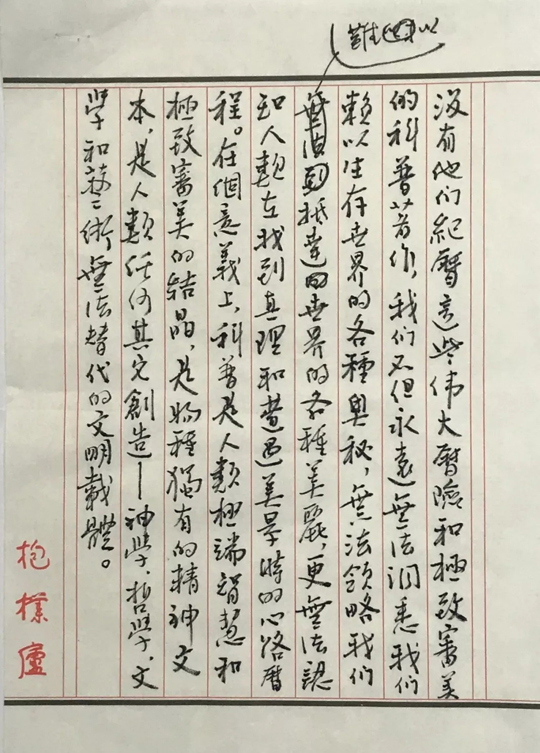 難以
没有他们紀曆這些伟大曆險和極致審美
的科普著作，我们不但永遠無法洞悉我们
賴以生存世界的各種奥秘，無法領略我们
抵達的世界的各種美麗，更無法認
知人類在找到真理和遭遇美景時的心路曆
程。在個意義上，科普是人類極端智慧和
極致審美的結晶，是物種獨有的精神文
本，是人類任何其它創造—神學、哲學、文
學和藝術無法替代的文明載體。
抱樸廬